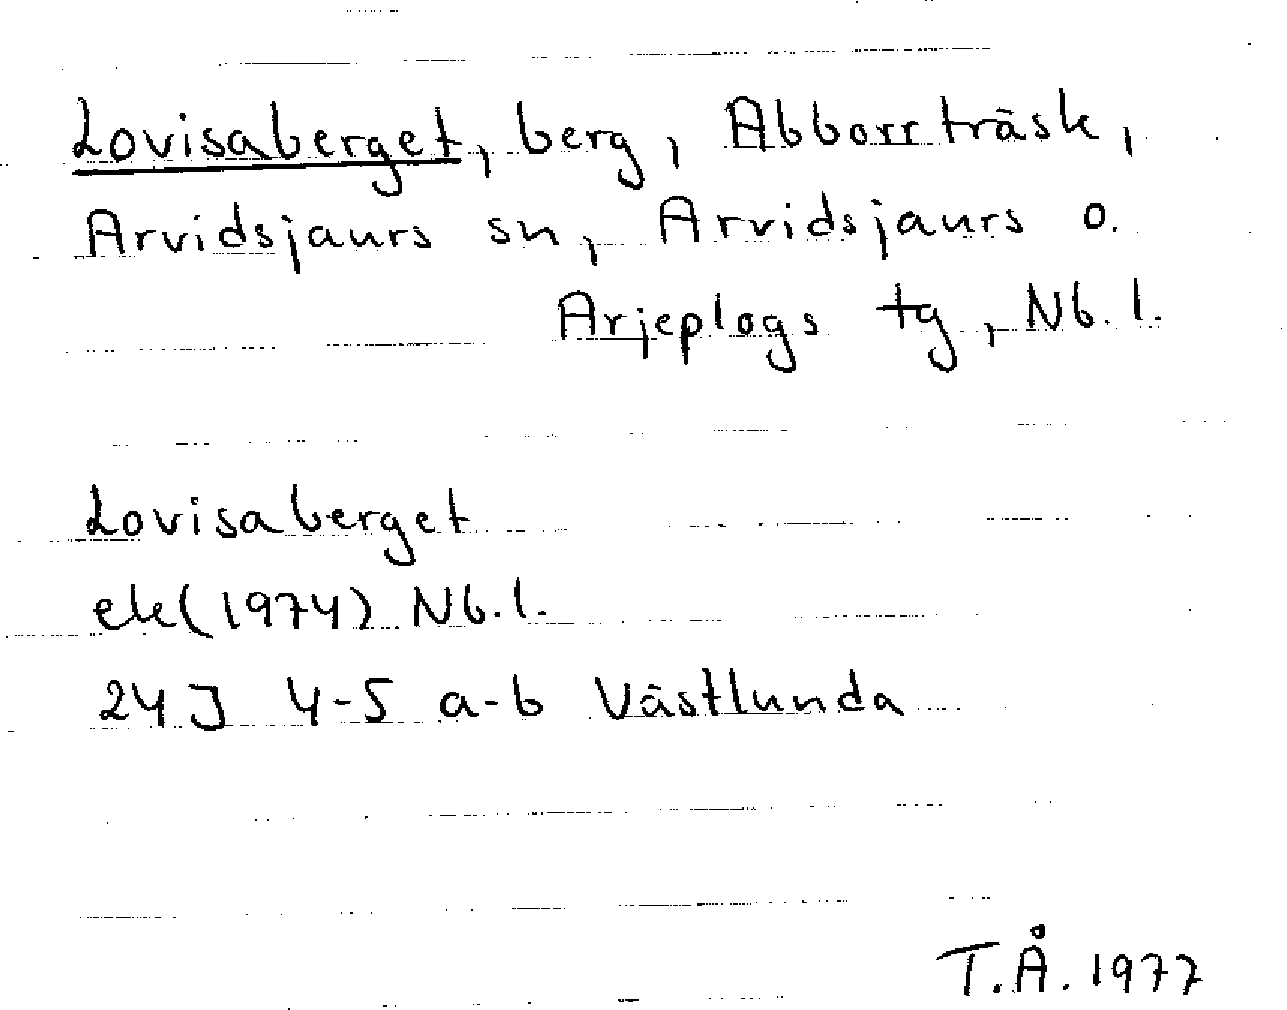 Lovisaberget, berg, Abborrträsk,
Arvidsjaurs sn, Arvidsjaurs o.
Arjeplogs tg, Nb. l.
Lovisaberget
ek(1974) Nb. l.
24 J 4-5 a-b Västlunda
T.Å. 1977